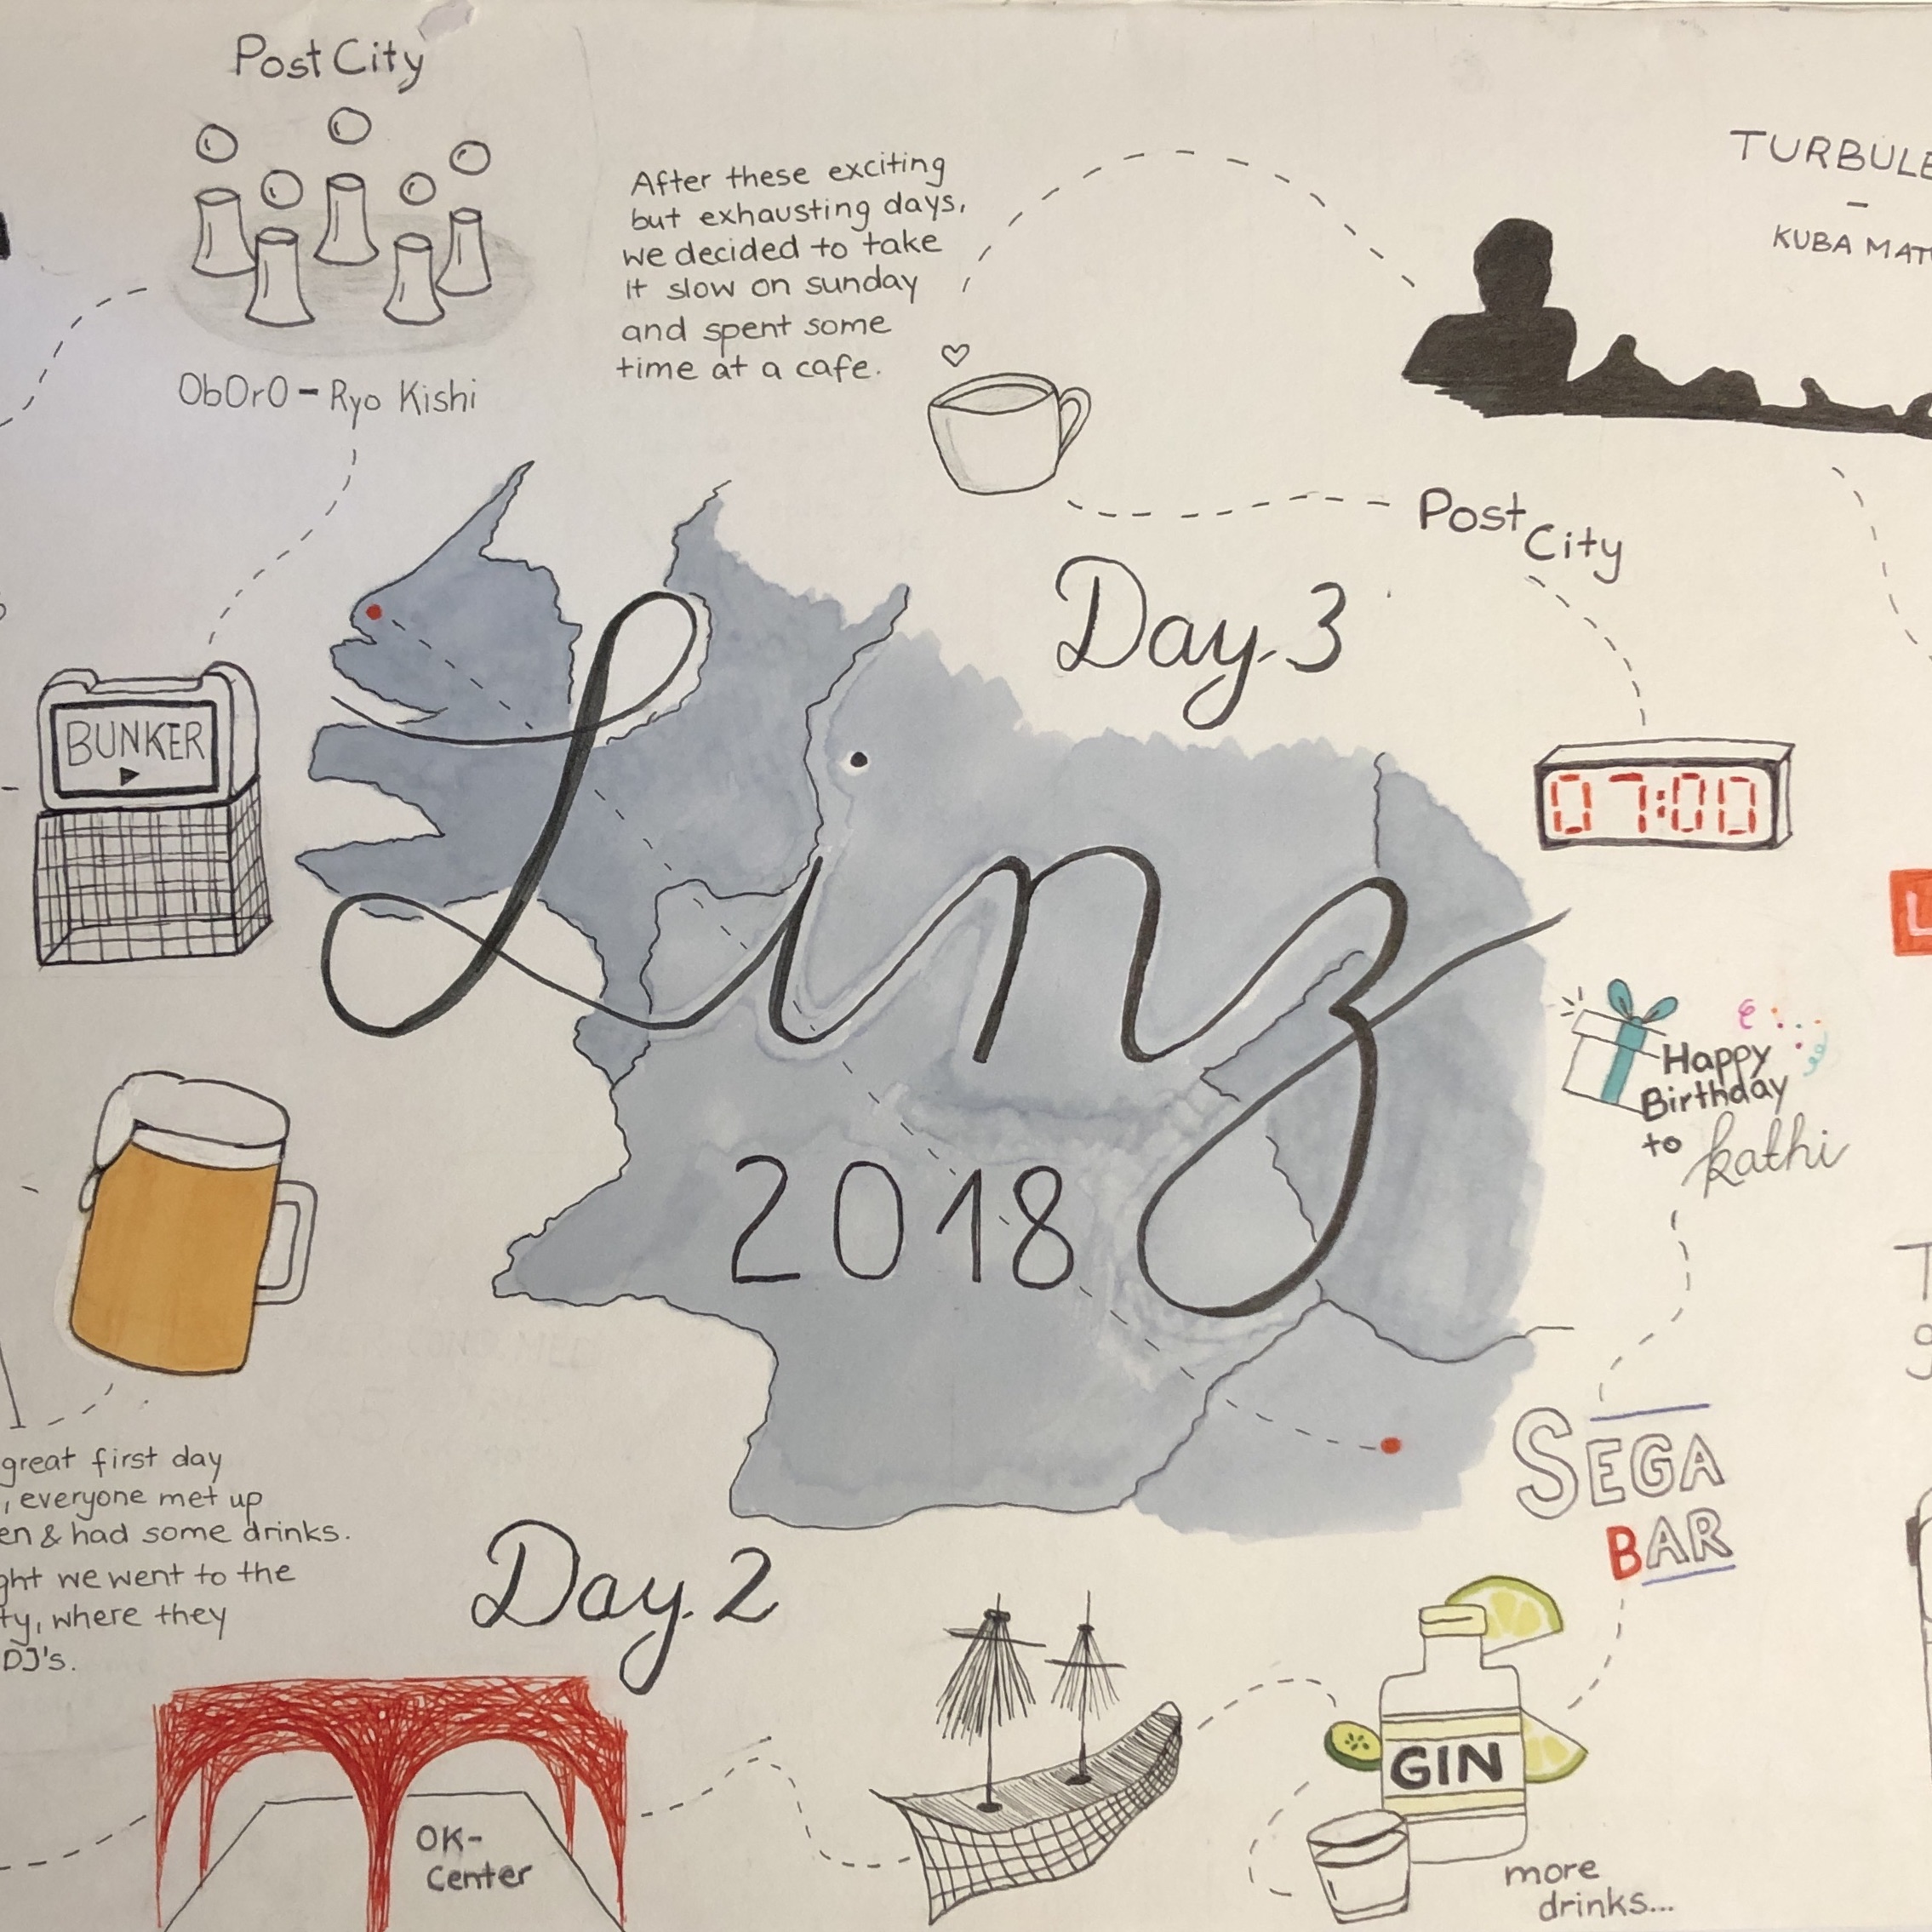 Post City
ObOrO - Ryo Kishi
After these exciting
but exhausting days,
we decided to take
it slow on sunday
and spent some
time at a cafe.
KUBA
Post
City
Day 3
BUNKER
07:00
Linz
2018
Happy
Birthday
to kathi
great first day
, everyone met up
& had some drinks.
we went to the
, where they
DJ's.
Day 2
SEGA
BAR
GIN
OK-
Center
more
drinks...